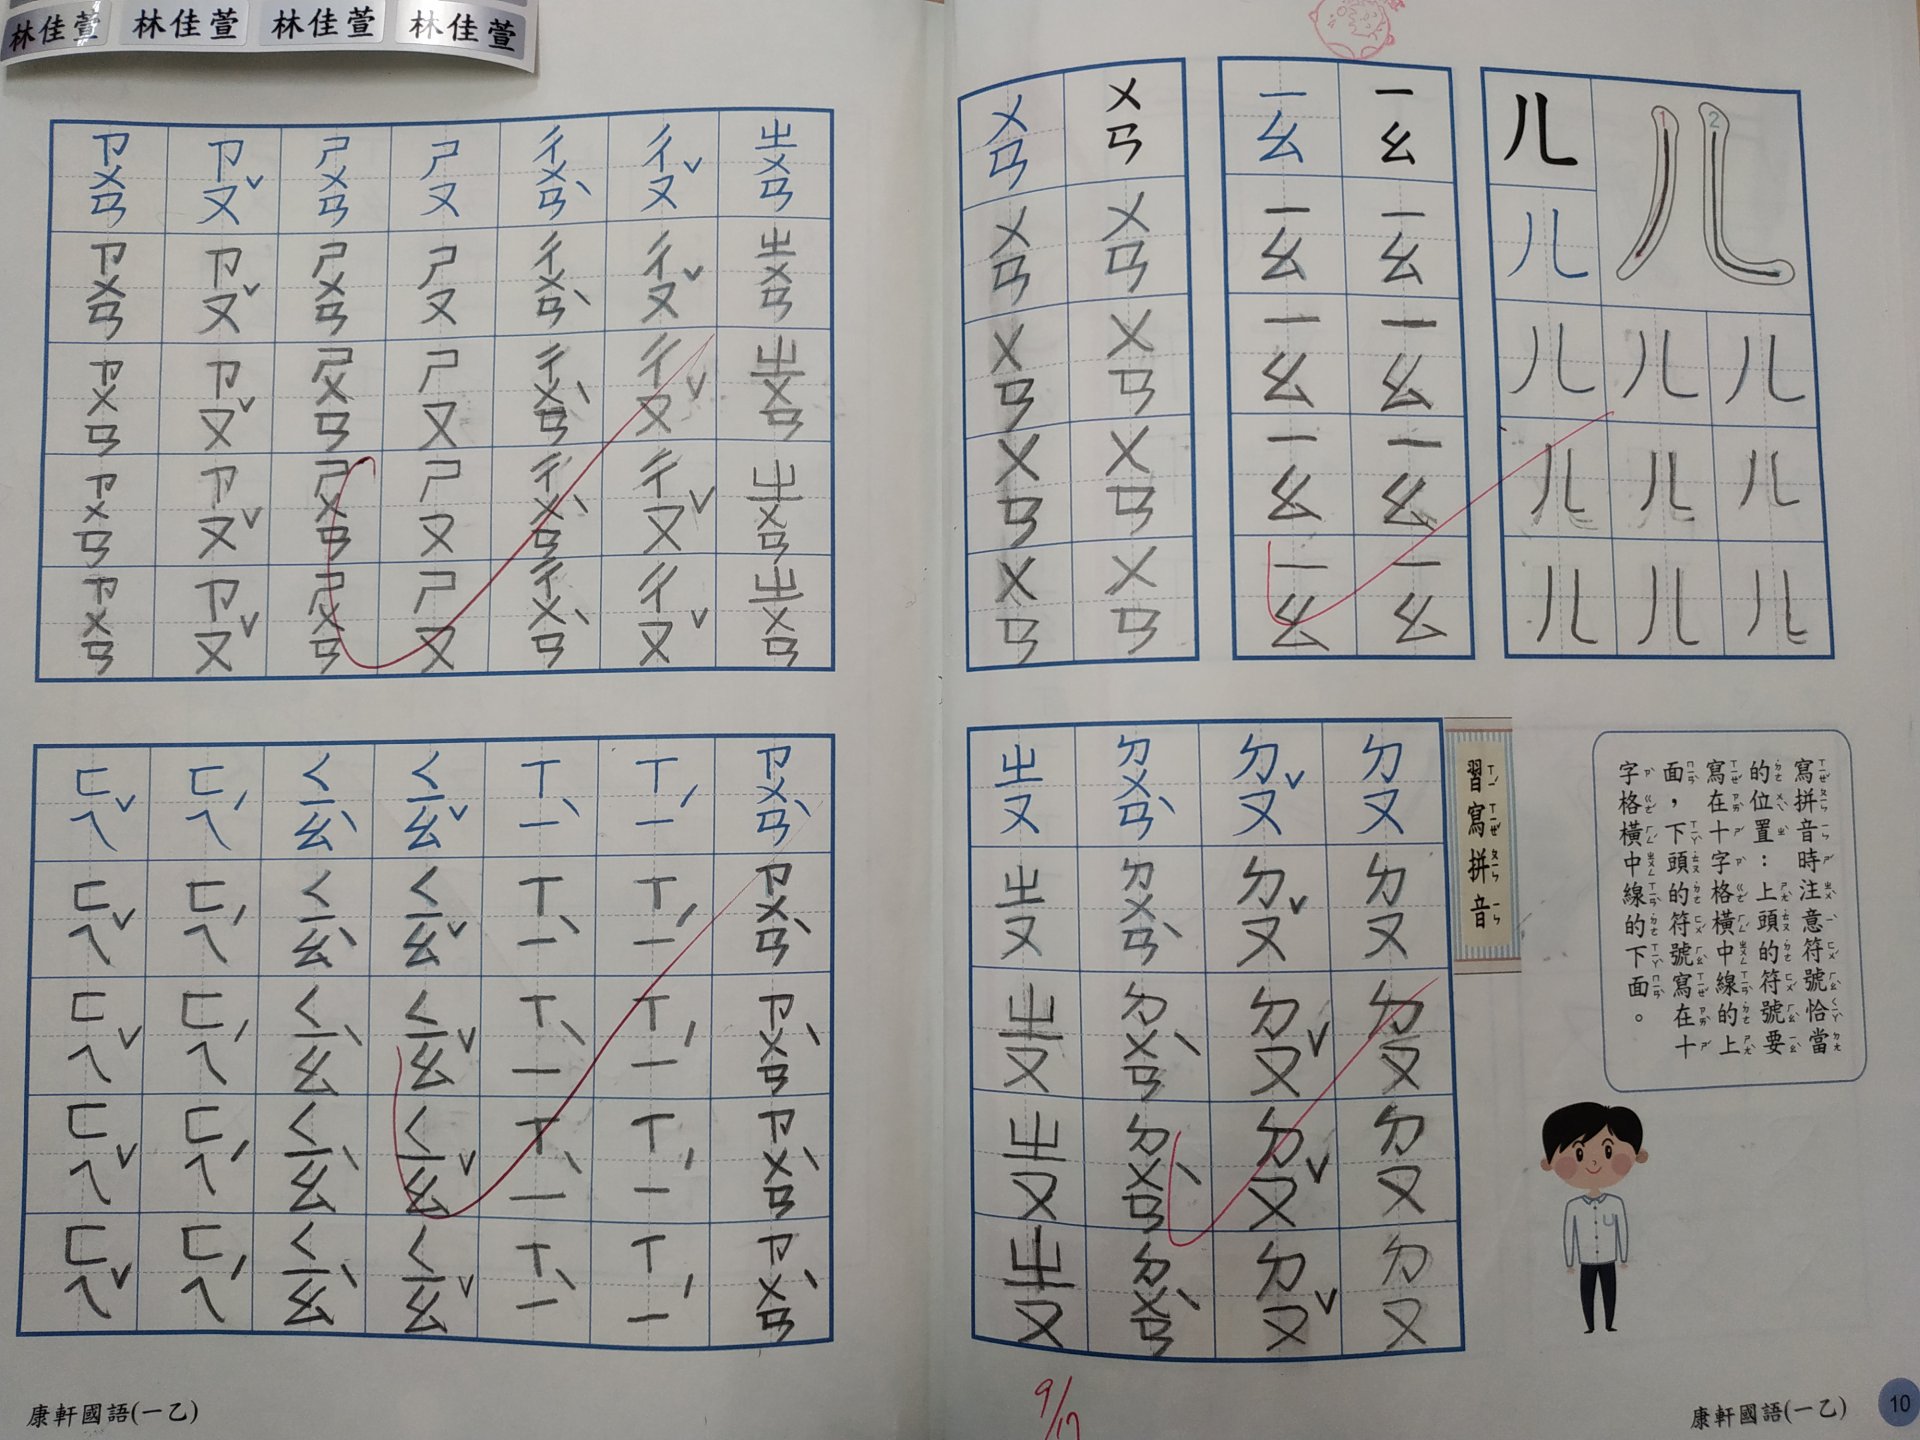 林佳萱 林佳萱 林佳萱 林佳萱
ㄦ ㄦ 1 2
ㄦ
ㄦ ㄦ ㄦ
ㄦ ㄦ ㄦ
ㄦ ㄦ ㄦ
ㄧㄠ ㄧㄠ ㄧㄠ ㄧㄠ ㄧㄠ
ㄧㄠ ㄧㄠ ㄧㄠ ㄧㄠ ㄧㄠ
ㄨㄢ ㄨㄢ ㄨㄢ ㄨㄢ ㄨㄢ
ㄨㄢ ㄨㄢ ㄨㄢ ㄨㄢ ㄨㄢ
寫拼音時注意符號恰當
的位置：上頭的符號要
寫在十字格橫中線的上
面，下頭的符號寫在十
字格橫中線的下面。
習寫拼音
ㄉㄡ ㄉㄡ ㄉㄡ ㄉㄡ ㄉㄡ
ㄉㄡˇ ㄉㄡˇ ㄉㄡˇ ㄉㄡˇ ㄉㄡˇ
ㄉㄨㄢˋ ㄉㄨㄢˋ ㄉㄨㄢˋ ㄉㄨㄢˋ ㄉㄨㄢˋ
ㄓㄡ ㄓㄡ ㄓㄡ ㄓㄡ ㄓㄡ
9/17
康軒國語(一乙) 10
ㄓㄨㄢ ㄓㄨㄢ ㄓㄨㄢ ㄓㄨㄢ ㄓㄨㄢ
ㄔㄡˇ ㄔㄡˇ ㄔㄡˇ ㄔㄡˇ ㄔㄡˇ
ㄔㄨㄢˋ ㄔㄨㄢˋ ㄔㄨㄢˋ ㄔㄨㄢˋ ㄔㄨㄢˋ
ㄕㄡ ㄕㄡ ㄕㄡ ㄕㄡ ㄕㄡ
ㄕㄨㄢ ㄕㄨㄢ ㄕㄨㄢ ㄕㄨㄢ ㄕㄨㄢ
ㄗㄡˇ ㄗㄡˇ ㄗㄡˇ ㄗㄡˇ ㄗㄡˇ
ㄗㄨㄢ ㄗㄨㄢ ㄗㄨㄢ ㄗㄨㄢ ㄗㄨㄢ
ㄗㄨㄢˋ ㄗㄨㄢˋ ㄗㄨㄢˋ ㄗㄨㄢˋ ㄗㄨㄢˋ
ㄒㄧˊ ㄒㄧˊ ㄒㄧˊ ㄒㄧˊ ㄒㄧˊ
ㄒㄧˋ ㄒㄧˋ ㄒㄧˋ ㄒㄧˋ ㄒㄧˋ
ㄑㄧㄠˇ ㄑㄧㄠˇ ㄑㄧㄠˇ ㄑㄧㄠˇ ㄑㄧㄠˇ
ㄑㄧㄠˋ ㄑㄧㄠˋ ㄑㄧㄠˋ ㄑㄧㄠˋ ㄑㄧㄠˋ
ㄈㄟˊ ㄈㄟˊ ㄈㄟˊ ㄈㄟˊ ㄈㄟˊ
ㄈㄟˇ ㄈㄟˇ ㄈㄟˇ ㄈㄟˇ ㄈㄟˇ
康軒國語(一乙)